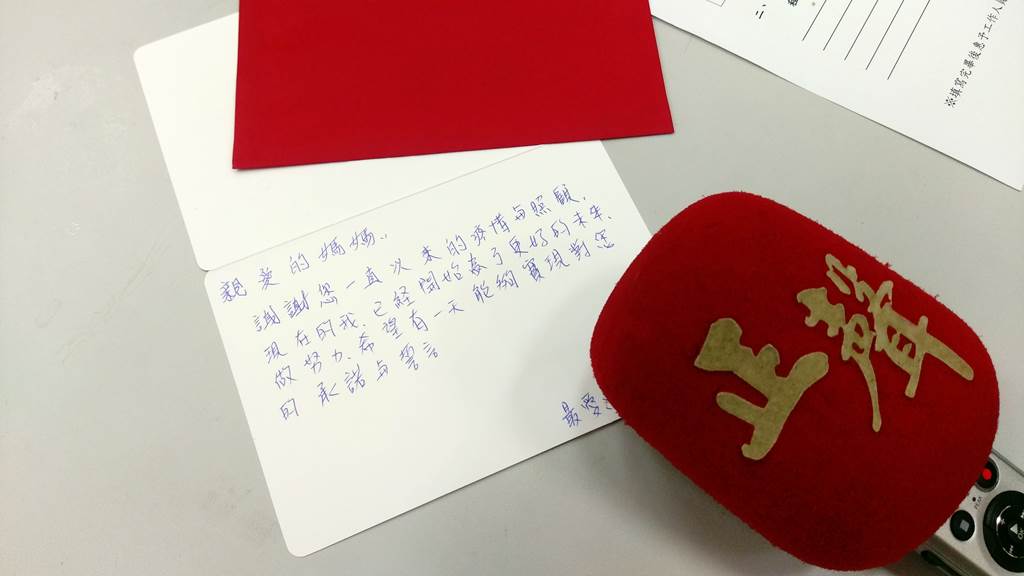 親愛的媽媽..
謝謝您一直以來的疼惜與照顧.
現在的我.已經開始為了更好的未來.
做努力.希望有一天能夠實現對您
的承諾與誓言
最愛
正聲
※填寫完畢後惠予工作人員